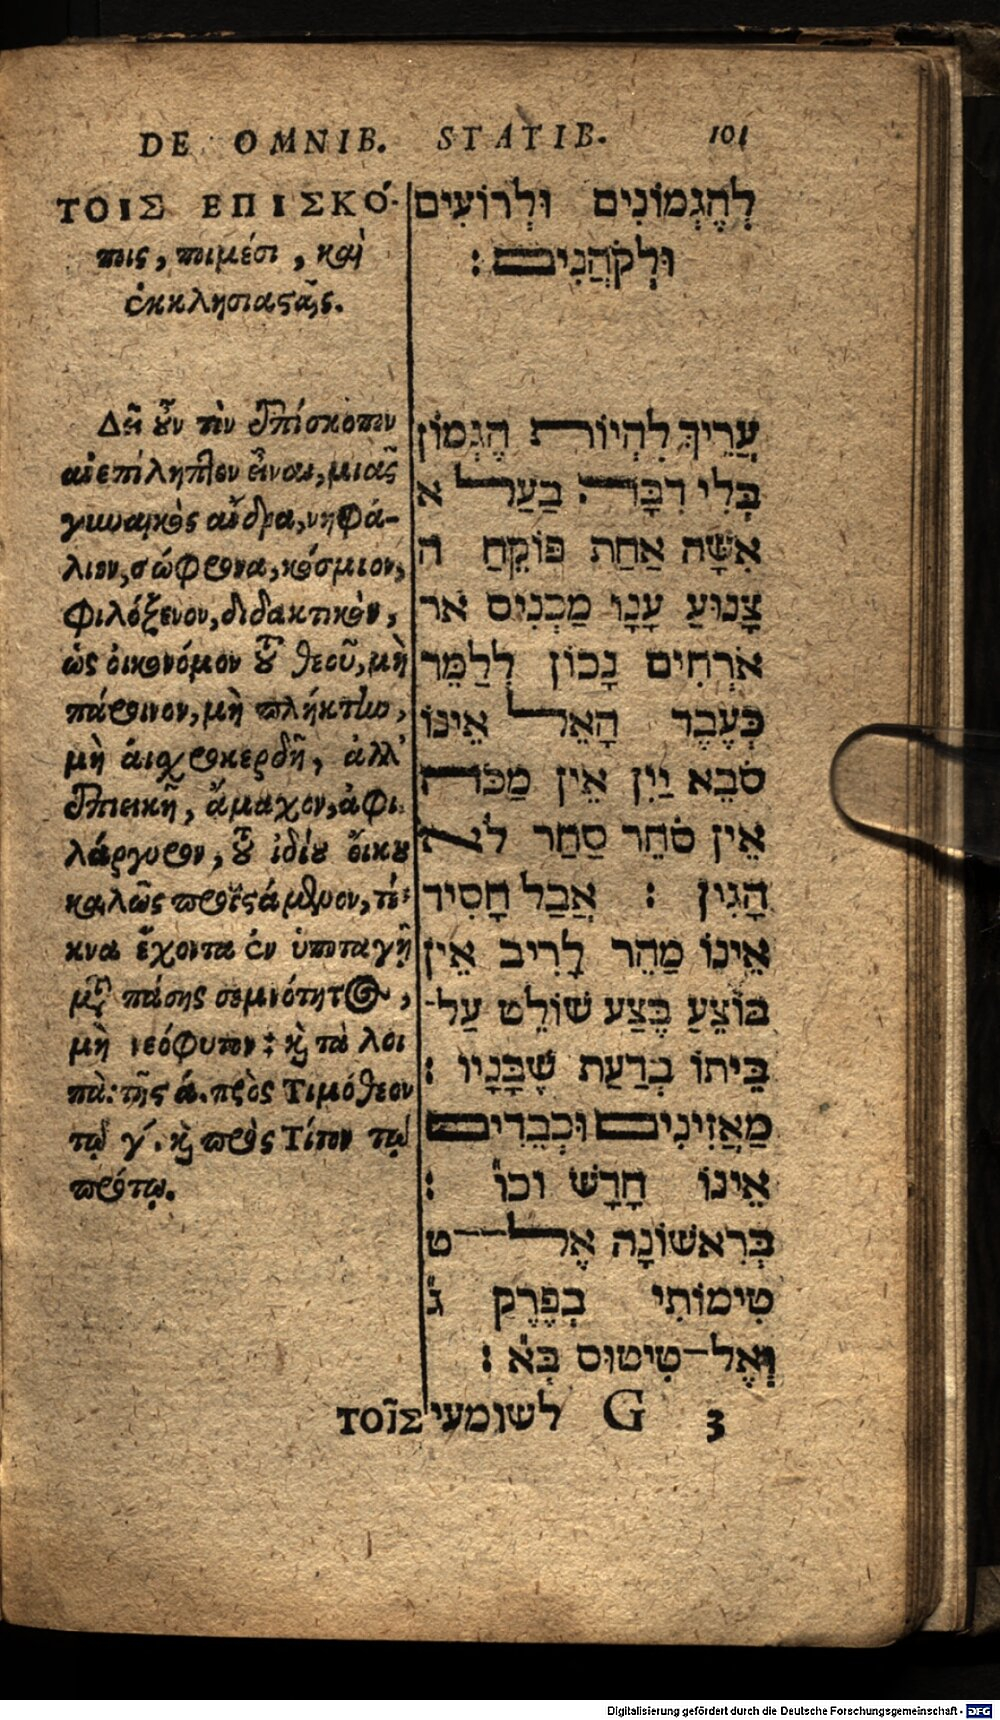 DE OMNIB. STATIB. 101
ΤΟΙΣ ΕΠΙΣΚΌ-
ποις, ποιμέσι, καὶ
ἐκκλησιασταῖς.
Δεῖ οὖν τὸν ἐπίσκοπον
ἀνεπίληπτον εἶναι, μιᾶς
γυναικὸς ἄνδρα, νηφά-
λιον, σώφρονα, κόσμιον,
φιλόξενον, διδακτικόν,
ὡς οἰκονόμον τοῦ θεοῦ, μὴ
πάροινον, μὴ πλήκτην,
μὴ αἰσχροκερδῆ, ἀλλ'
ἐπιεικῆ, ἄμαχον, ἀφι
λάργυρον, τοῦ ἰδίου οἴκου
καλῶς προϊστάμενον, τέ-
κνα ἔχοντα ἐν ὑποταγῇ
μετὰ πάσης σεμνότητος,
μὴ νεόφυτον: καὶ τὰ λοι
πὰ: τῆς ά. πρὸς Τιμόθεον
τῷ γ΄. καὶ πρὸς Τίτον τῷ
πρώτῳ.
ΤΟῖΣ
לְהֶגְמוֹנִים וּלְרוֹעִים
וּלְקֹהֲנִים :
עָרֵיךְ לִהְיוֹת הֶגְמוֹן
בְּלִי דִבָּה בַעַל א
אִשָּׁה אַחַת פּוֹקֵחַ ה
צָנוּעַ עָנָו מַכְנִיס אר
אֹרְחִים נָכוֹן לְלַמֵּר
כְּעֶבֶר הָאֵל אֵינוֹ
סֹבֵא יַיִן אֵין מַכֹּת
אֵין סֹחֵר סַחַר לֹא
הָגִין : אֲבַל חָסִיד
אֵינוֹ מַהֵר לָרִיב אֵין
בּוֹצֵעַ בֶּצַע שׁוֹלֵט עַל־
בֵּיתוֹ בְרַעַת שֶׁבָּנָיו :
מַאֲזִינִים וּכְבֵדִים
אֵינוֹ חָרָשׁ וכו֞ :
בְּרִאשׁוֹנָה אֶל־־ט
טִימוֹתִי בְפֶרֶק ג֞
וְאֶל־טִיטוּס בְּא֞ :
לשומעי G 3
Digitalisierung gefördert durch die Deutsche Forschungsgemeinschaft - DFG